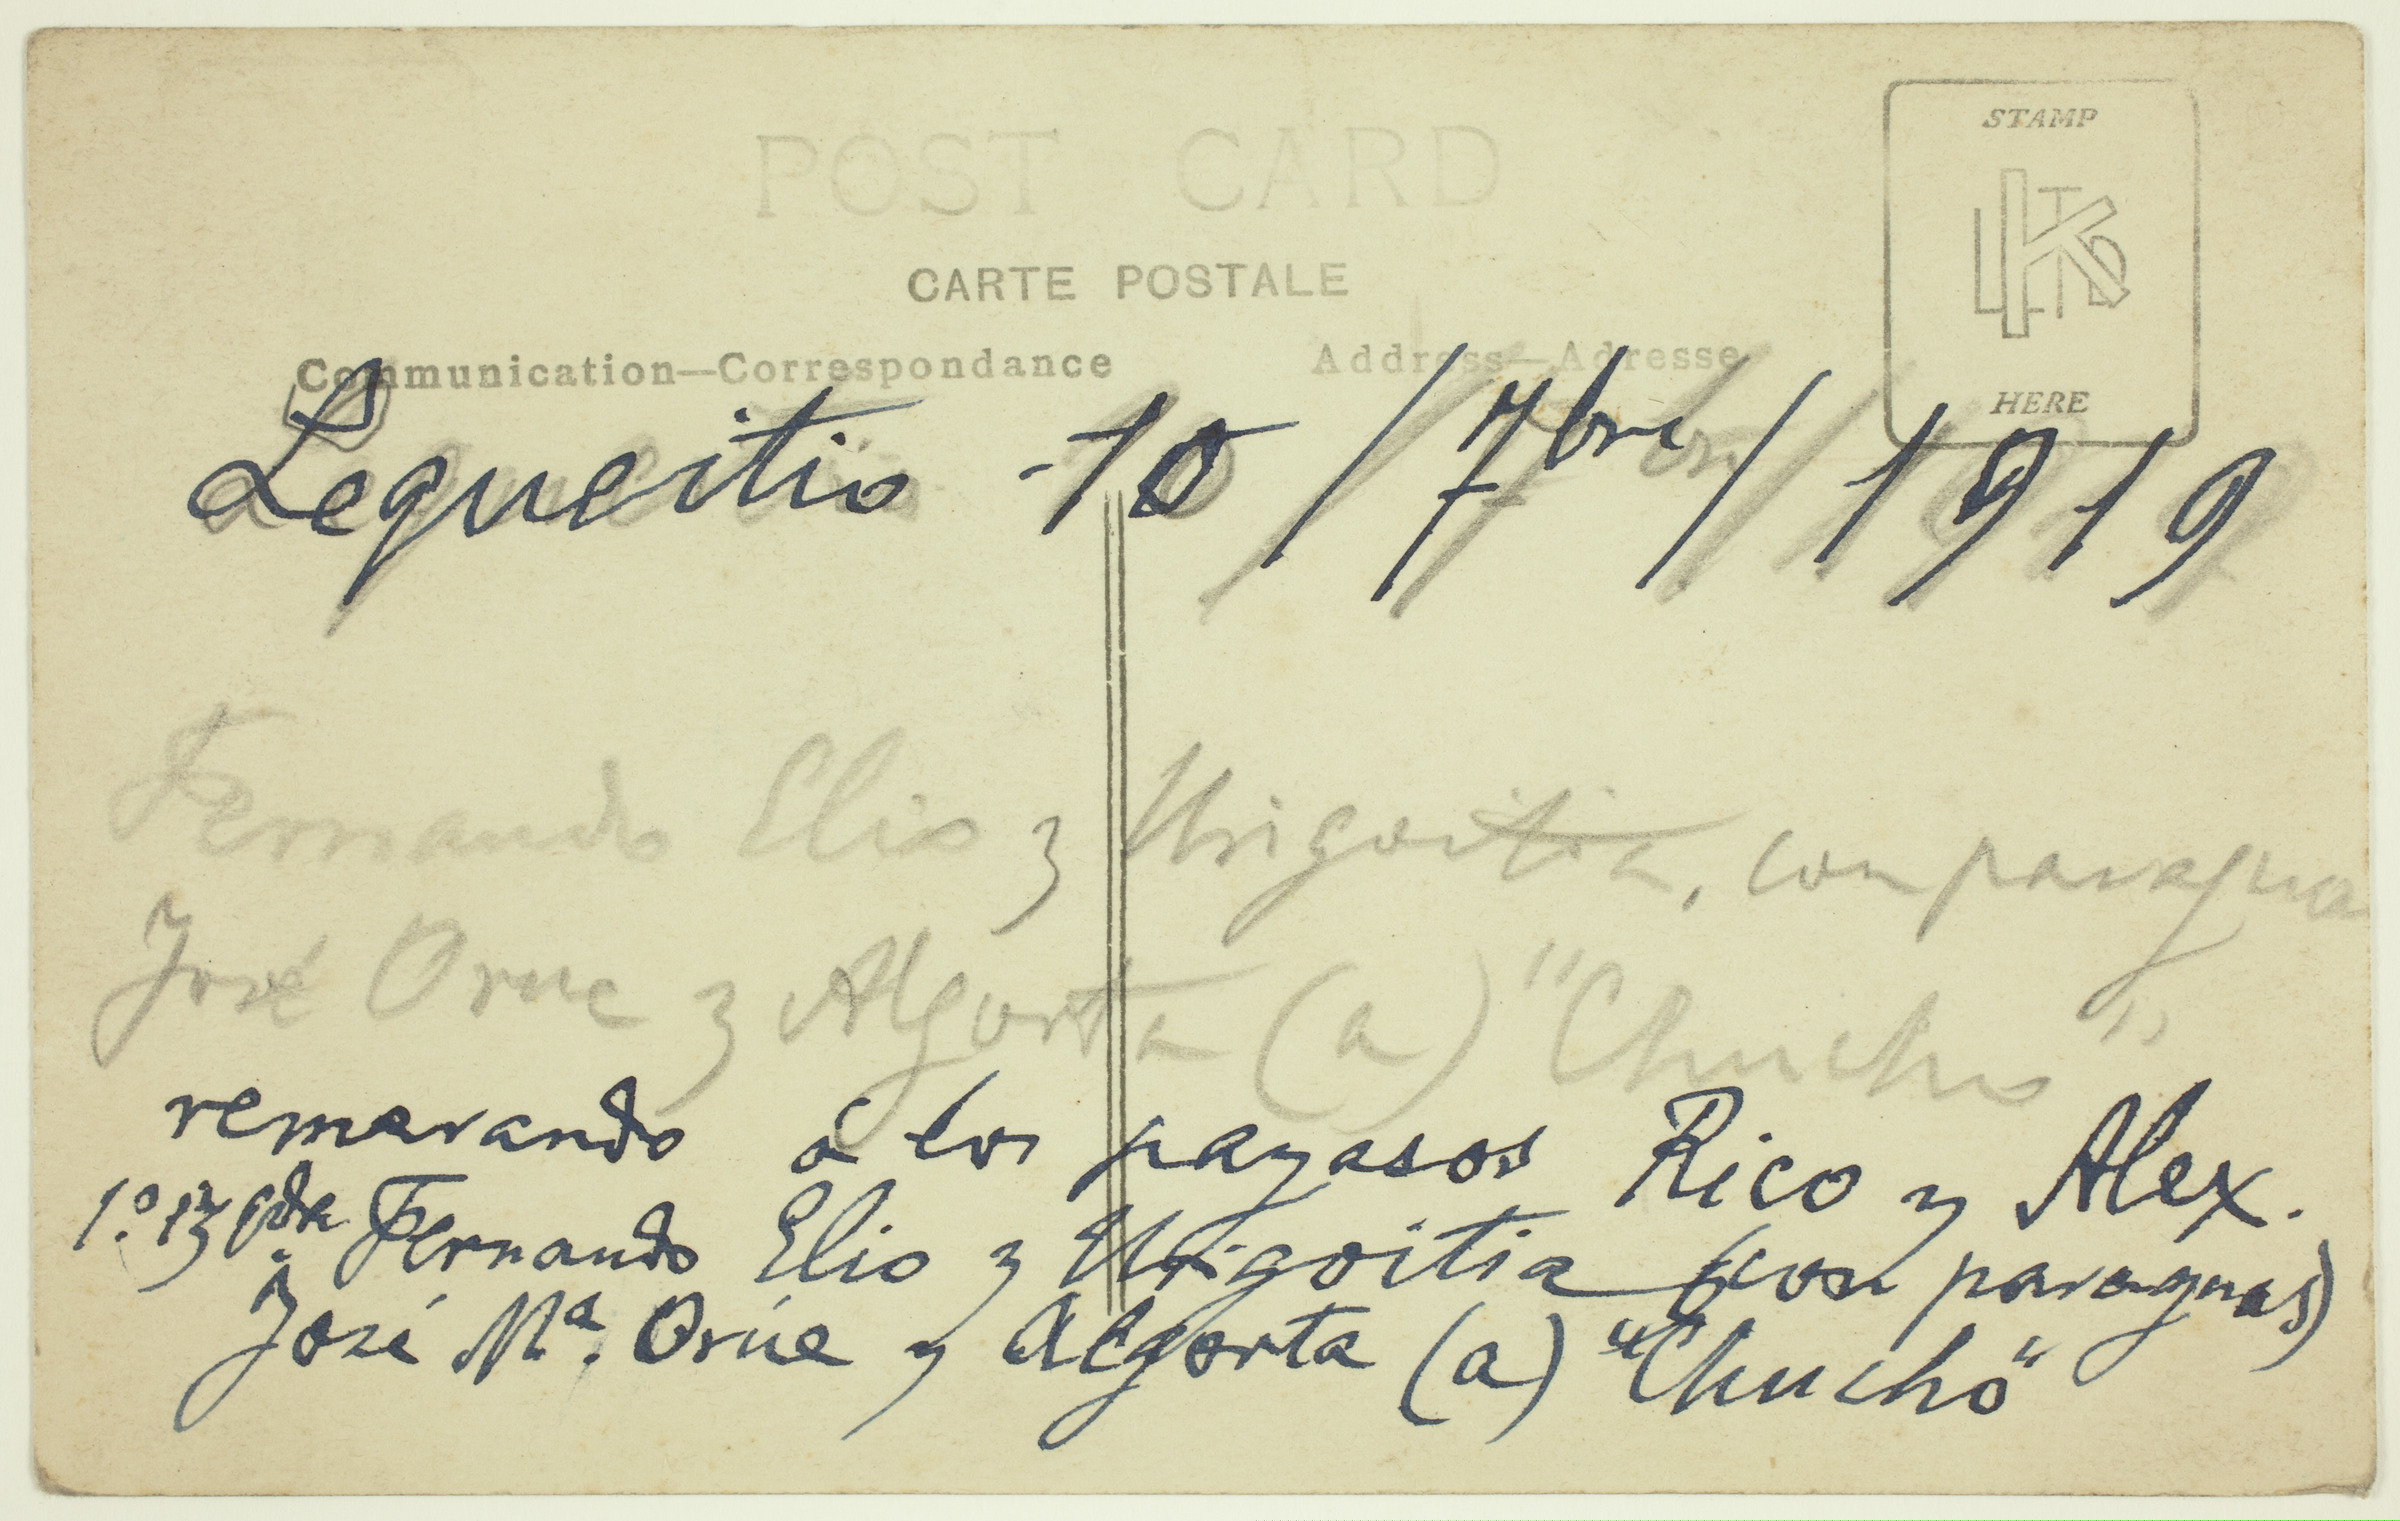 POST CARD
STAMP
K LTD
CARTE POSTALE
HERE
Communication—Correspondance Address—Adresse
Lequeitio -10/7bre/1919
Fernando Elio y Urigoitia, con paragua
José Orue y Algorta (a) "Chucho"
remerando á los payasos Rico y Alex.
1.º izqda Fernando Elio y Urigoitia (con paraguas)
José Mª. Orúe y Algorta (a) "Chucho"